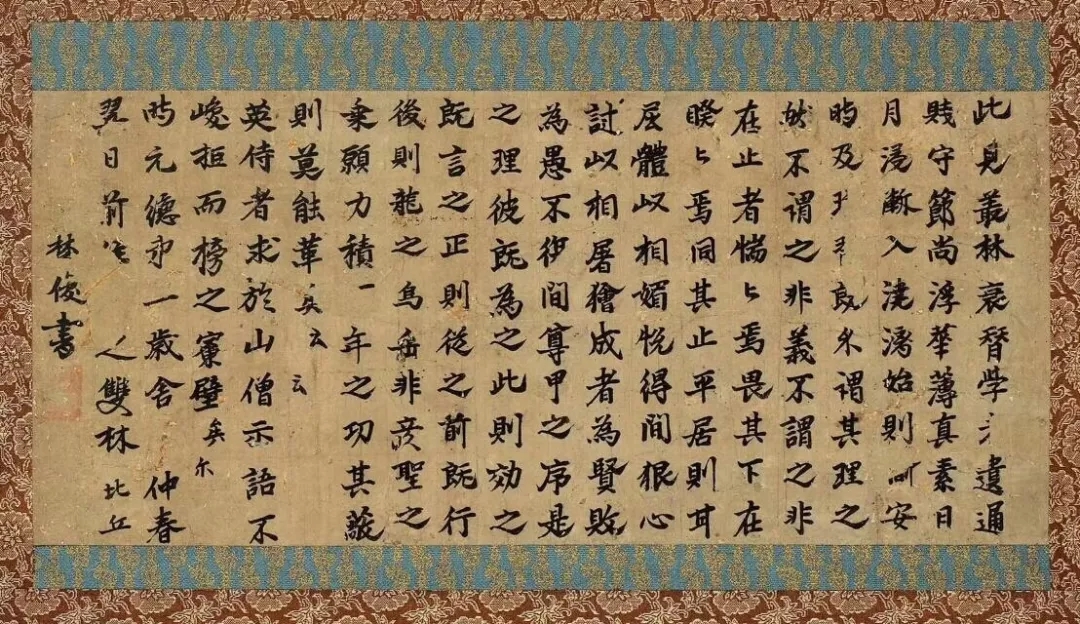 此見叢林衰替学遺通
賎守節尚浮華薄真素日
月浸漸入澆漓始則安
時及既久謂其理之
然不謂之非義不謂之非
在止者惴〻焉畏其下在
睽〻焉伺其止平居則甘
屈體以相媚悅得間狠心
討以相屠獪成者為賢敗
為愚不復間尊卑之序是
之理彼既為之此則効之
既言之正則從之前既行
後則龍之烏虖非彥聖之
乗願力積一年之功其蔽
則莫能革矣云云
英侍者求於山僧示語不
峻拒而榜之寮壁矣尒
時元德第一歲舍仲春
翌日前住人雙林比丘
林俊書